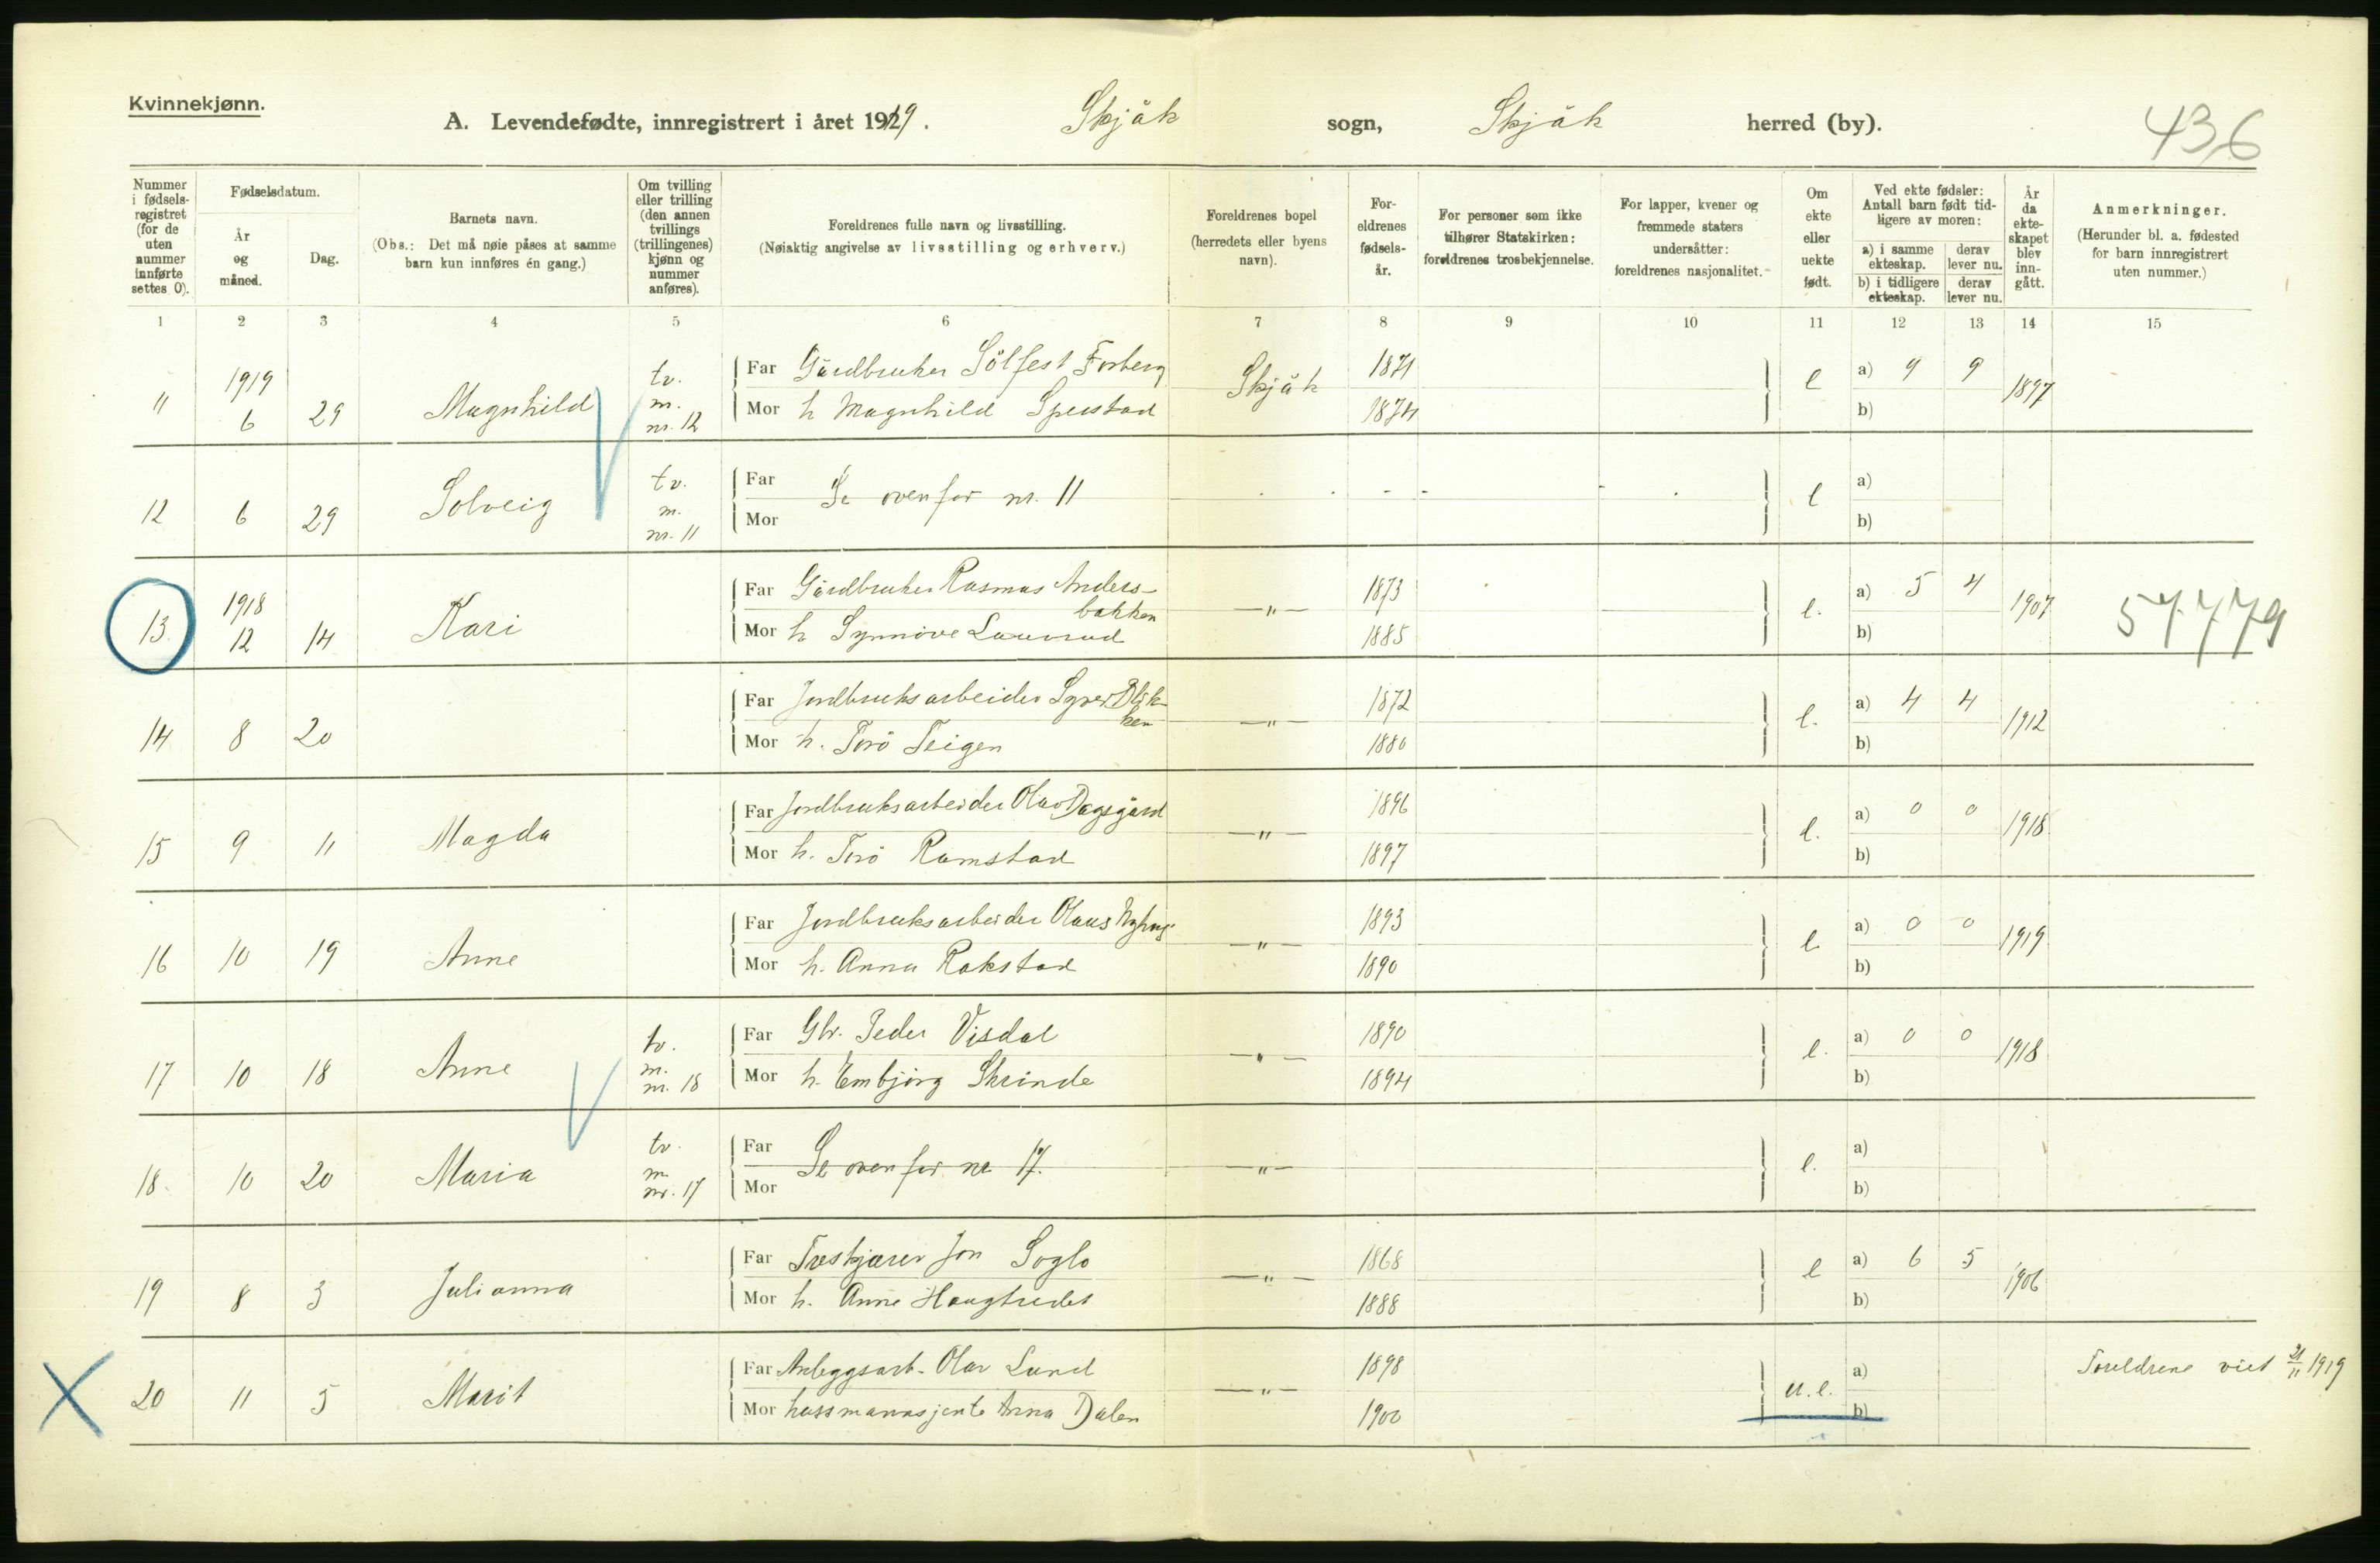 Kvinnekjønn.
A. Levendefødte, innregistrert i året 1919. Skjåk sogn, Skjåk herred (by).
436
Nummer i fødselsregistret (for de uten nummer innførte settes 0).
Fødselsdatum.
År og måned.
Dag.
Barnets navn.
(Obs.: Det må nøie påses at samme barn kun innføres én gang.)
Om tvilling eller trilling (den annen tvillings (trillingenes) kjønn og nummer anføres).
Foreldrenes fulle navn og livsstilling.
(Nøiaktig angivelse av livsstilling og erhverv.)
Foreldrenes bopel (herredets eller byens navn).
Foreldrenes fødselsår.
For personer som ikke tilhører Statskirken: foreldrenes trosbekjennelse.
For lapper, kvener og fremmede staters undersåtter: foreldrenes nasjonalitet.
Om ekte eller uekte født.
Ved ekte fødsler: Antall barn født tidligere av moren:
a) i samme ekteskap. derav lever nu.
b) i tidligere ekteskap. derav lever nu.
År da ekteskapet blev inngått.
Anmerkninger.
(Herunder bl. a. fødested for barn innregistrert uten nummer.)
1 2 3 4 5 6 7 8 9 10 11 12 13 14 15
11 1919 6 29 Magnhild tv. m. nr. 12 Far Gårdbruker Sölfest Forberg Skjåk 1871 e a) 9 9 1897
Mor h Magnhild Sperstad 1874 b)
12 6 29 Solveig tv. m. nr. 11 Far Mor Se ovenfor nr. 11 e a) b)
13 1918 12 14 Kari Far Gårdbruker Rasmus Andersbakken —"— 1873 e. a) 5 4 1907 57779
Mor h Synnöve 1885 b)
14 8 20 Far Jordbruksarbeider Syver —"— 1872 e. a) 4 4 1912
Mor h. Torö Teigen 1880 b)
15 9 11 Magda Far Jordbruksarbeider Olav Dagsgård —"— 1896 e. a) 0 0 1918
Mor h. Torö Ramstad 1897 b)
16 10 19 Anne Far Jordbruksarbeider Olaus —"— 1893 e a) 0 0 1919
Mor h. Anna Rakstad 1890 b)
17 10 18 Anne tv. m. nr. 18 Far Gbr. Peder Visdal —"— 1890 e. a) 0 0 1918
Mor h. Embjörg Skrinde 1894 b)
18 10 20 Maria tv. m nr. 17 Far Mor Se ovenfor nr 17. —"— e. a) b)
19 8 3 Julianna Far Treskjærer Jon Soglo —"— 1868 e a) 6 5 1906
Mor h. Anne 1888 b)
20 11 5 Marit Far Anleggsarb. Olav Lund —"— 1898 u. e. a) Foreldrene viet 21/11 1919
Mor husmannsjente Anna Dalen 1900 b)